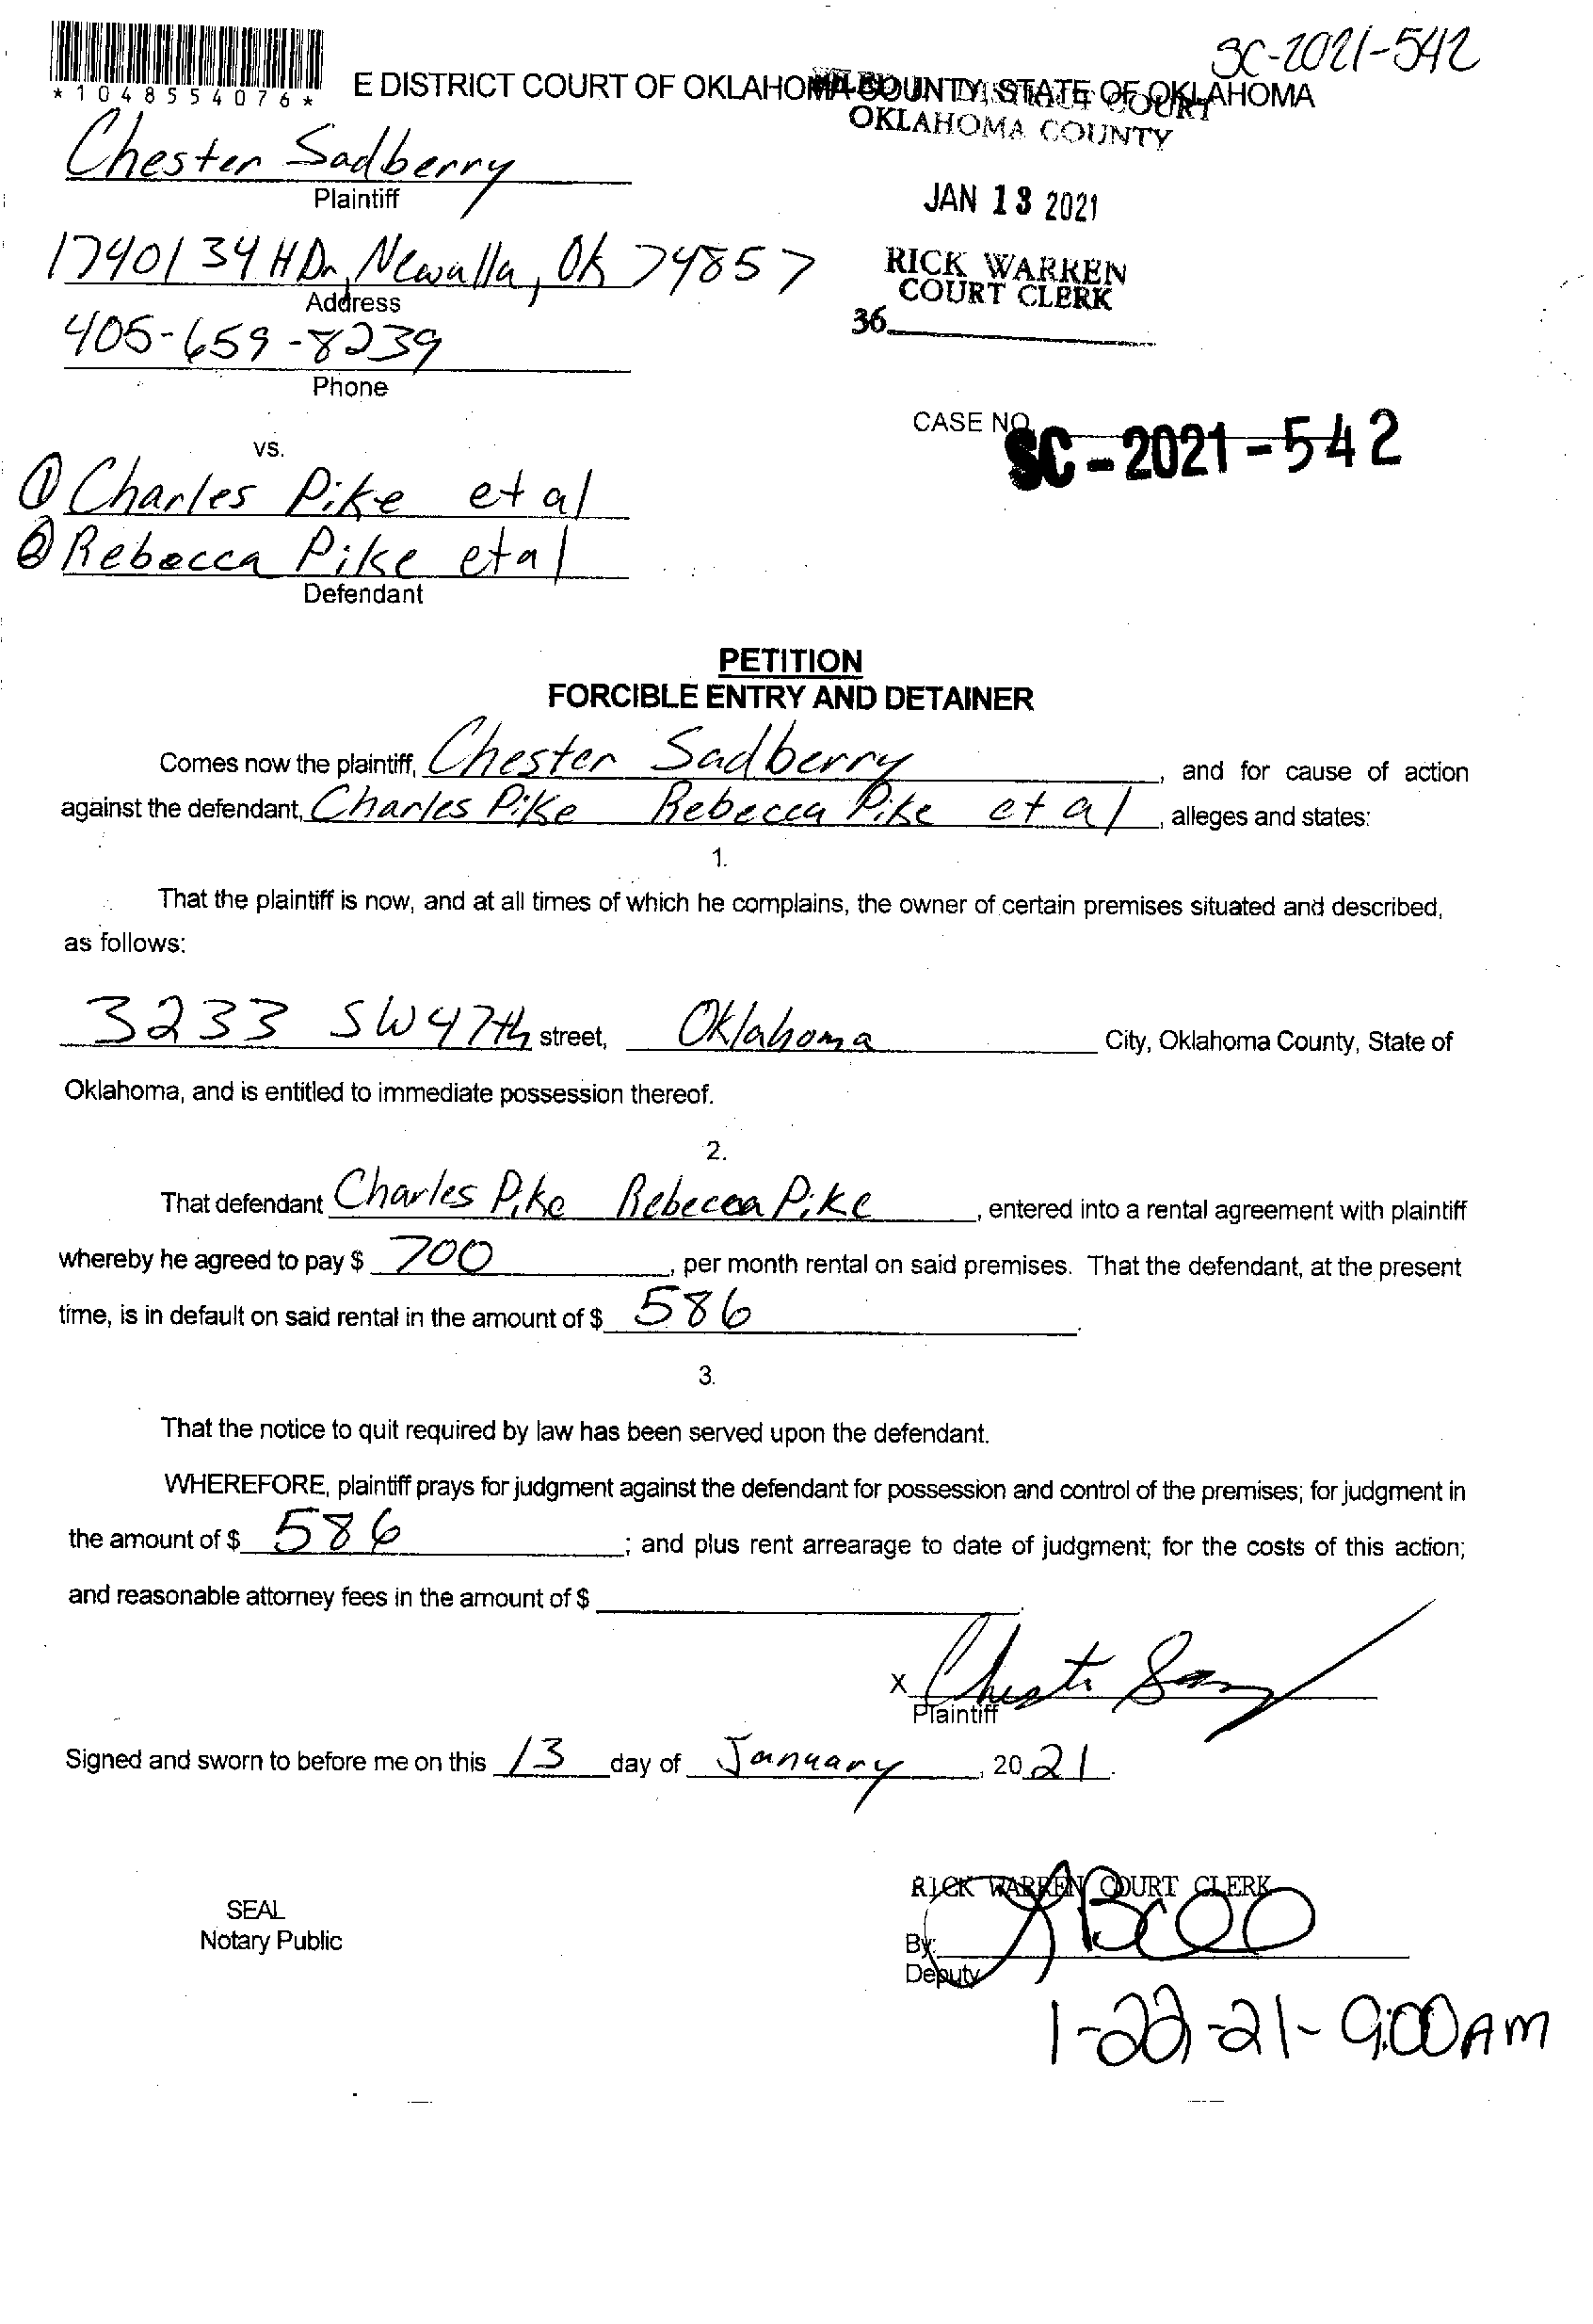 SC-2021-542
*1048554076*
E DISTRICT COURT OF OKLAHOMA COUNTY, STATE OF OKLAHOMA
DISTRICT COURT
OKLAHOMA COUNTY
Chester Sadberry
Plaintiff
JAN 13 2021
17401 34 H Dr, Newalla, Ok 74857
Address
RICK WARREN
COURT CLERK
36
405-659-8239
Phone
CASE NO. SC-2021-542
vs.
① Charles Pike et al
② Rebecca Pike et al
Defendant
PETITION
FORCIBLE ENTRY AND DETAINER
Comes now the plaintiff, Chester Sadberry, and for cause of action
against the defendant, Charles Pike Rebecca Pike et al, alleges and states:
1.
That the plaintiff is now, and at all times of which he complains, the owner of certain premises situated and described,
as follows:
3233 SW 47th street, Oklahoma City, Oklahoma County, State of
Oklahoma, and is entitled to immediate possession thereof.
2.
That defendant Charles Pike Rebecca Pike, entered into a rental agreement with plaintiff
whereby he agreed to pay $ 700, per month rental on said premises. That the defendant, at the present
time, is in default on said rental in the amount of $ 586.
3.
That the notice to quit required by law has been served upon the defendant.
WHEREFORE, plaintiff prays for judgment against the defendant for possession and control of the premises; for judgment in
the amount of $ 586; and plus rent arrearage to date of judgment; for the costs of this action;
and reasonable attorney fees in the amount of $
X
Plaintiff
Signed and sworn to before me on this 13 day of January, 2021.
RICK WARREN COURT CLERK
SEAL
Notary Public
By:
Deputy
1-22-21- 9:00AM